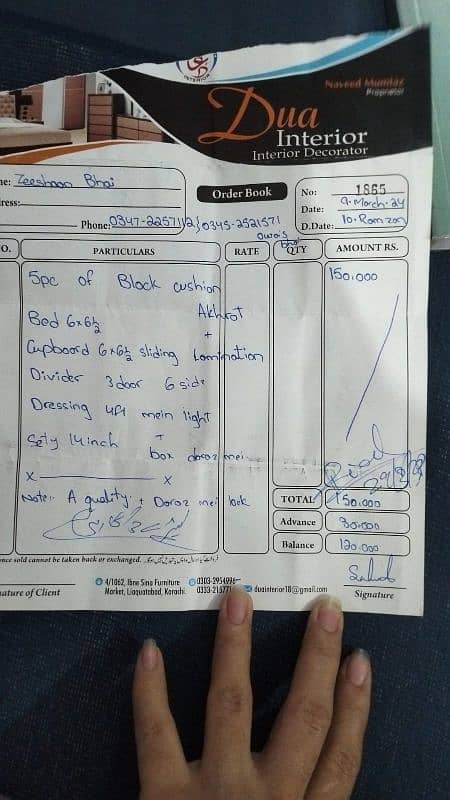 INTERIOR
Naveed Mumtaz
Proprietor
Dua
Interior
Interior Decorator
me: Zeeshaan Bhai
ress:
Phone: 0347-2257112/0345-2521571
Owais bhai
Order Book
No: 1865
Date: 9-March-24
D.Date: 10-Ramzan
O. PARTICULARS RATE QTY AMOUNT RS.
5pc of Block cushion 150,000
Akhrot
Bed 6x6½ +
Cupboard 6x6½ sliding Lamination
Divider 3door 6 side
Dressing 4ft mein light
+
Sety 14inch box daroz mei
x x
Note:- A quality + Daroz mei lock
Paid
TOTAL 150,000
Advance 30,000
Balance 120,000
nce sold cannot be taken back or exchanged.
nature of Client
4/1062, Ibne Sina Furniture
Market, Liaquatabad, Karachi.
0303-2954996
duainterior18@gmail.com
Signature